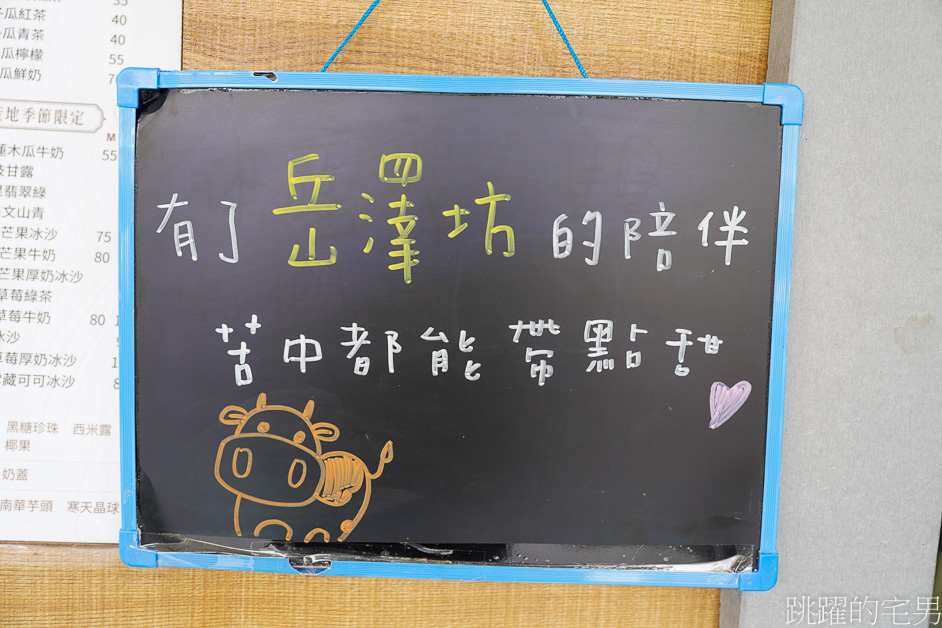 瓜紅茶
40
瓜青茶
40
瓜檸檬
55
瓜鮮奶
地季節限定
M
木瓜牛奶 55
甘露
翡翠綠
文山青
芒果冰沙 75
芒果牛奶 80
芒果厚奶冰沙
草莓綠茶
草莓牛奶 80 1
冰沙
草莓厚奶冰沙 1
藏可可冰沙 8
黑糖珍珠 西米露
椰果
奶蓋
南華芋頭 寒天晶球
有了岳澤坊的陪伴
苦中都能帶點甜
跳躍的宅男